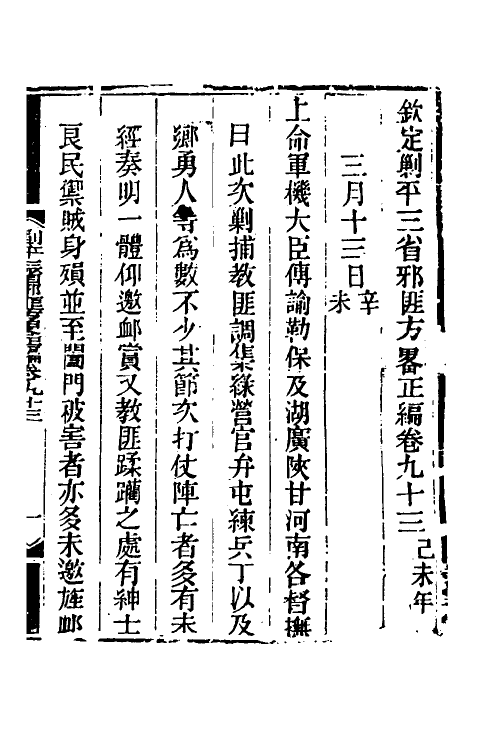 欽定剿平三省邪匪方畧正編卷九十三 己未年
三月十三日 辛未
上命軍機大臣傳諭勒保及湖廣陜甘河南各督撫
曰此次剿捕教匪調集綠營官弁屯練兵丁以及
鄉勇人等爲數不少其節次打仗陣亡者多有未
經奏明一體仰邀衈賞又教匪蹂躪之處有紳士
良民禦賊身殞並至閤門被害者亦多未邀旌衈
卷九十三
一